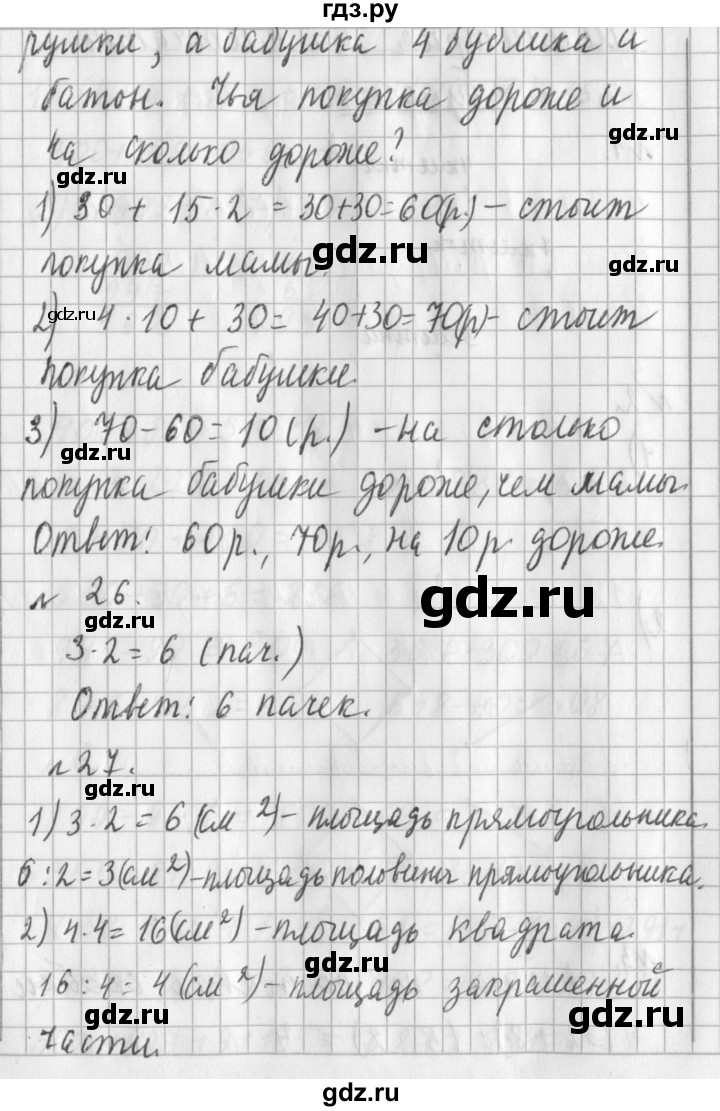 гдз.ру
рушки, а бабушка 4 бублика и
батон. Чья покупка дороже и
на сколько дороже?
gdz.ru
gdz.ru
1) 30 + 15·2 = 30+30=60(р.) – стоит
gdz.ru
покупка мамы.
gdz.ru
gdz.ru
2) 4·10 + 30 = 40+30=70(р)- стоит
покупка бабушки.
3) 70-60=10(р.) -на столько
gdz.ru
gdz.ru
покупка бабушки дороже, чем мамы.
Ответ: 60р., 70р., на 10р. дороже.
№ 26.
gdz.ru
gdz.ru
3·2 = 6 (пач.)
Ответ: 6 пачек.
№ 27.
gdz.ru
gdz.ru
1) 3·2 = 6 (см²)- площадь прямоугольника.
6:2=3(см²)-площадь половины прямоугольника.
2) 4·4= 16(см²) -площадь квадрата.
gdz.ru
gdz.ru
16:4 = 4 (см²)- площадь закрашенной
gdz.ru
части.
gdz.ru